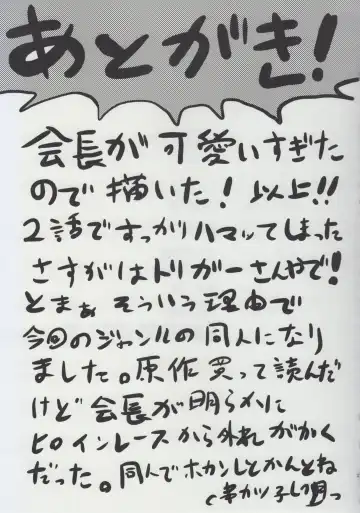 あとがき!
会長が可愛いすぎた
ので描いた! 以上!!
2話ですっかりハマッてしまった
さすがはトリガーさんやで!
とまぁ そういう理由で
今回のジャンルの同人になり
ました。原作 買って読んだ
けど 会長が明らかに
ヒロインレースから外れ がかく
だった。同人でホカンしとかんとね
串カツ子